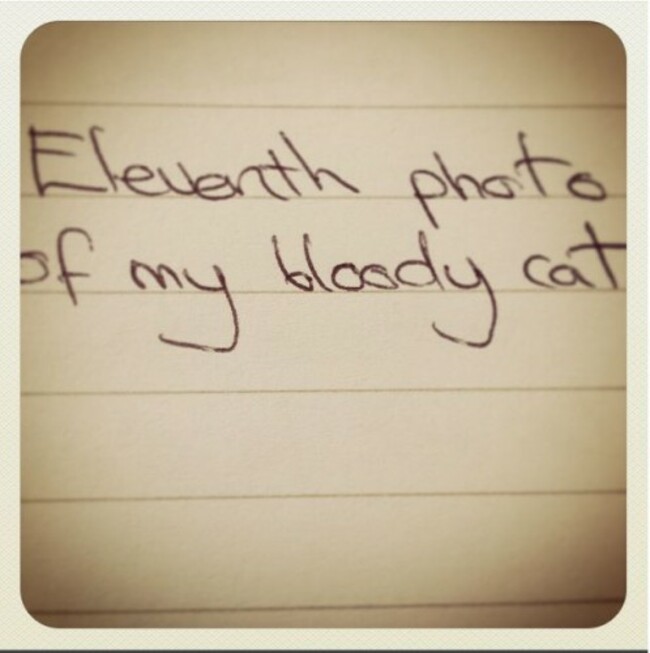 Eleventh photo
of my bloody cat